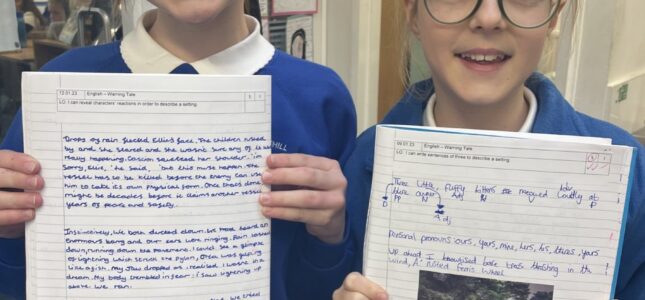 12.01.23 English - Warning Tale
LO: I can reveal characters' reactions in order to describe a setting.
Drops of rain flecked Ellie's face. The children rushed
by and she stared and she wasn't sure any of it was
really happening. squeezed her shoulder. 'im
sorry, Ellie,' he said, 'but this must happen. The
vessel has to be killed before the Enemy can use
him to take its own physical form. Once that's done it
might be decades before it claims another vessel
years of peace and safety.
Instinctively, we both ducked down. We have heard an
Enormous bang and our ears were ringing. Rain lashed
down, running down the pavement. I could see a glimpse
of lightning which struck the pylon, Orca was gulping
like a fish. My jaw dropped as I realised I wasn't in a
dream. My body trembled in fear: I saw lightning up
above we ran.
we tried
HILL
09.01.23 English - Warning Tale
LO: I can write sentences of three to describe a setting.
Three little, fluffy kittens
PP N Adj N P
D Adj
personal pronouns ours, yours, mine, hers, his, theirs, yours
Up ahead I
wind, A rusted Ferris Wheel